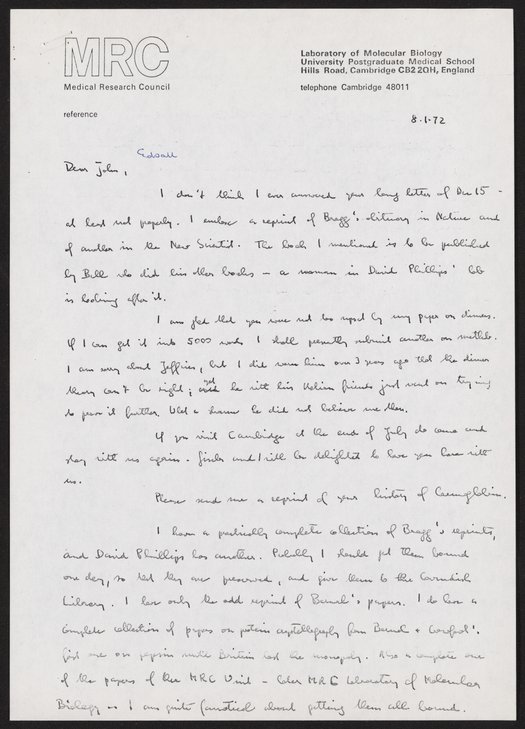 MRC
Medical Research Council
Laboratory of Molecular Biology
University Postgraduate Medical School
Hills Road, Cambridge CB2 2QH, England
telephone Cambridge 48011
reference
8.1.72
Edsall
Dear John,
I don't think I ever answered your long letter of Dec 15 -
at least not properly. I enclose a reprint of Bragg's obituary in Nature and
of another in the New Scientist. The book I mentioned is to be published
by Bell who did his other books - a woman in David Phillips' lab
is looking after it.
I am glad that you were not too upset by my paper on dimers.
If I can get it into 5000 words I shall presently submit another on
I am sorry about Jeffries, but I did warn him over 3 years ago that the dimer
theory can't be right; yet he with his Italian friends just went on trying
to prove it further. What a shame he did not believe me then.
If you visit Cambridge at the end of July do come and
stay with us again. Gisela and I will be delighted to have you here with
us.
Please send me a reprint of your history of Haemoglobin.
I have a practically complete collection of Bragg's reprints,
and David Phillips has another. Probably I should get them bound
one day, so that they are preserved, and give them to the Cavendish
Library. I have only the odd reprint of Bernal's papers. I do have a
complete collection of papers on protein crystallography from Bernal + Crowfoot's
first one on pepsin until Britain lost the monopoly. Also a complete one
of the papers of the MRC Unit - later MRC Laboratory of Molecular
Biology - I am quite fanatical about getting them all bound.